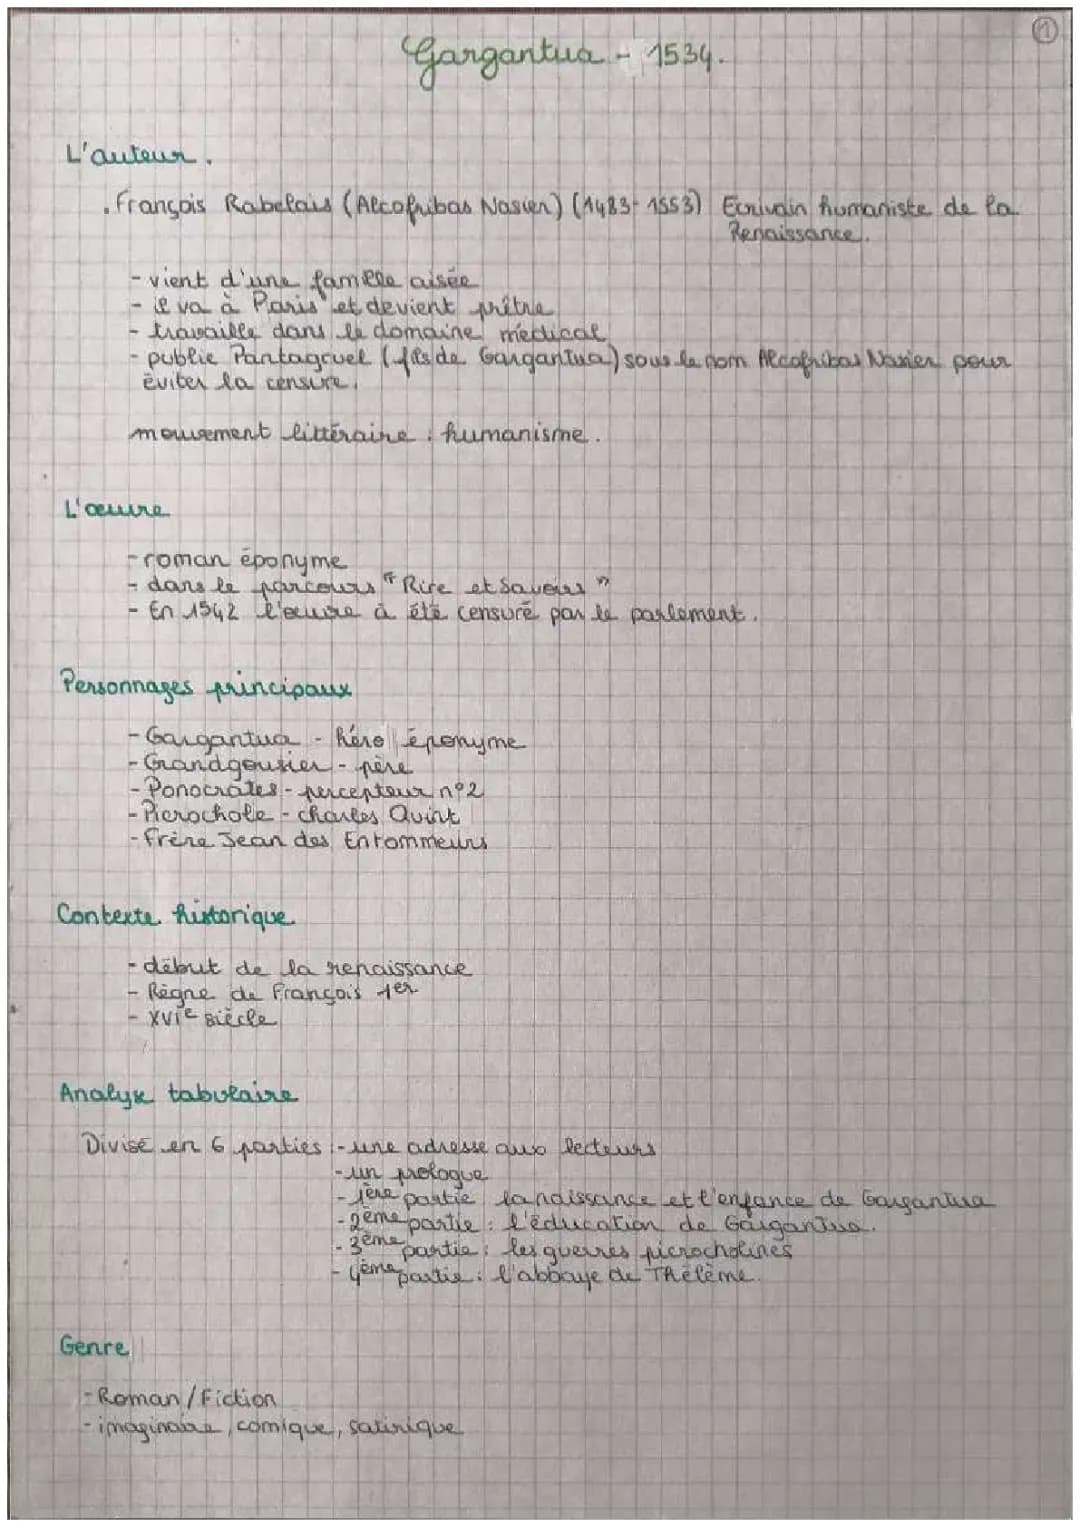 1
Gargantua - 1534.
L'auteur.
. François Rabelais (Alcofribas Nasier) (1483-1553) Ecrivain humaniste de la
Renaissance.
- vient d'une famille aisée
- il va à Paris et devient prêtre
- travaille dans le domaine médical
- publie Pantagruel (fils de Gargantua) sous le nom Alcofribas Nasier pour
éviter la censure.
mouvement littéraire : humanisme.
L'œuvre
- roman éponyme
- dans le parcours "Rire et Savoirs"
- En 1542 l'œuvre à été censuré par le parlement.
Personnages principaux
- Gargantua - héro éponyme
- Grandgousier - père
- Ponocrates - percepteur n°2
- Picrochole - charles Quint
- frère Jean des Entommeurs
Contexte historique
- début de la renaissance
- Règne de François 1er
- XVIe siècle
Analyse tabulaire
Divisé en 6 parties : - une adresse aux lecteurs
- un prologue
- 1ère partie la naissance et l'enfance de Gargantua
- 2ème partie : l'éducation de Gargantua.
- 3ème partie : les guerres picrocholines
- 4ème partie : l'abbaye de Thélème.
Genre
- Roman / Fiction
- imaginaire, comique, satirique